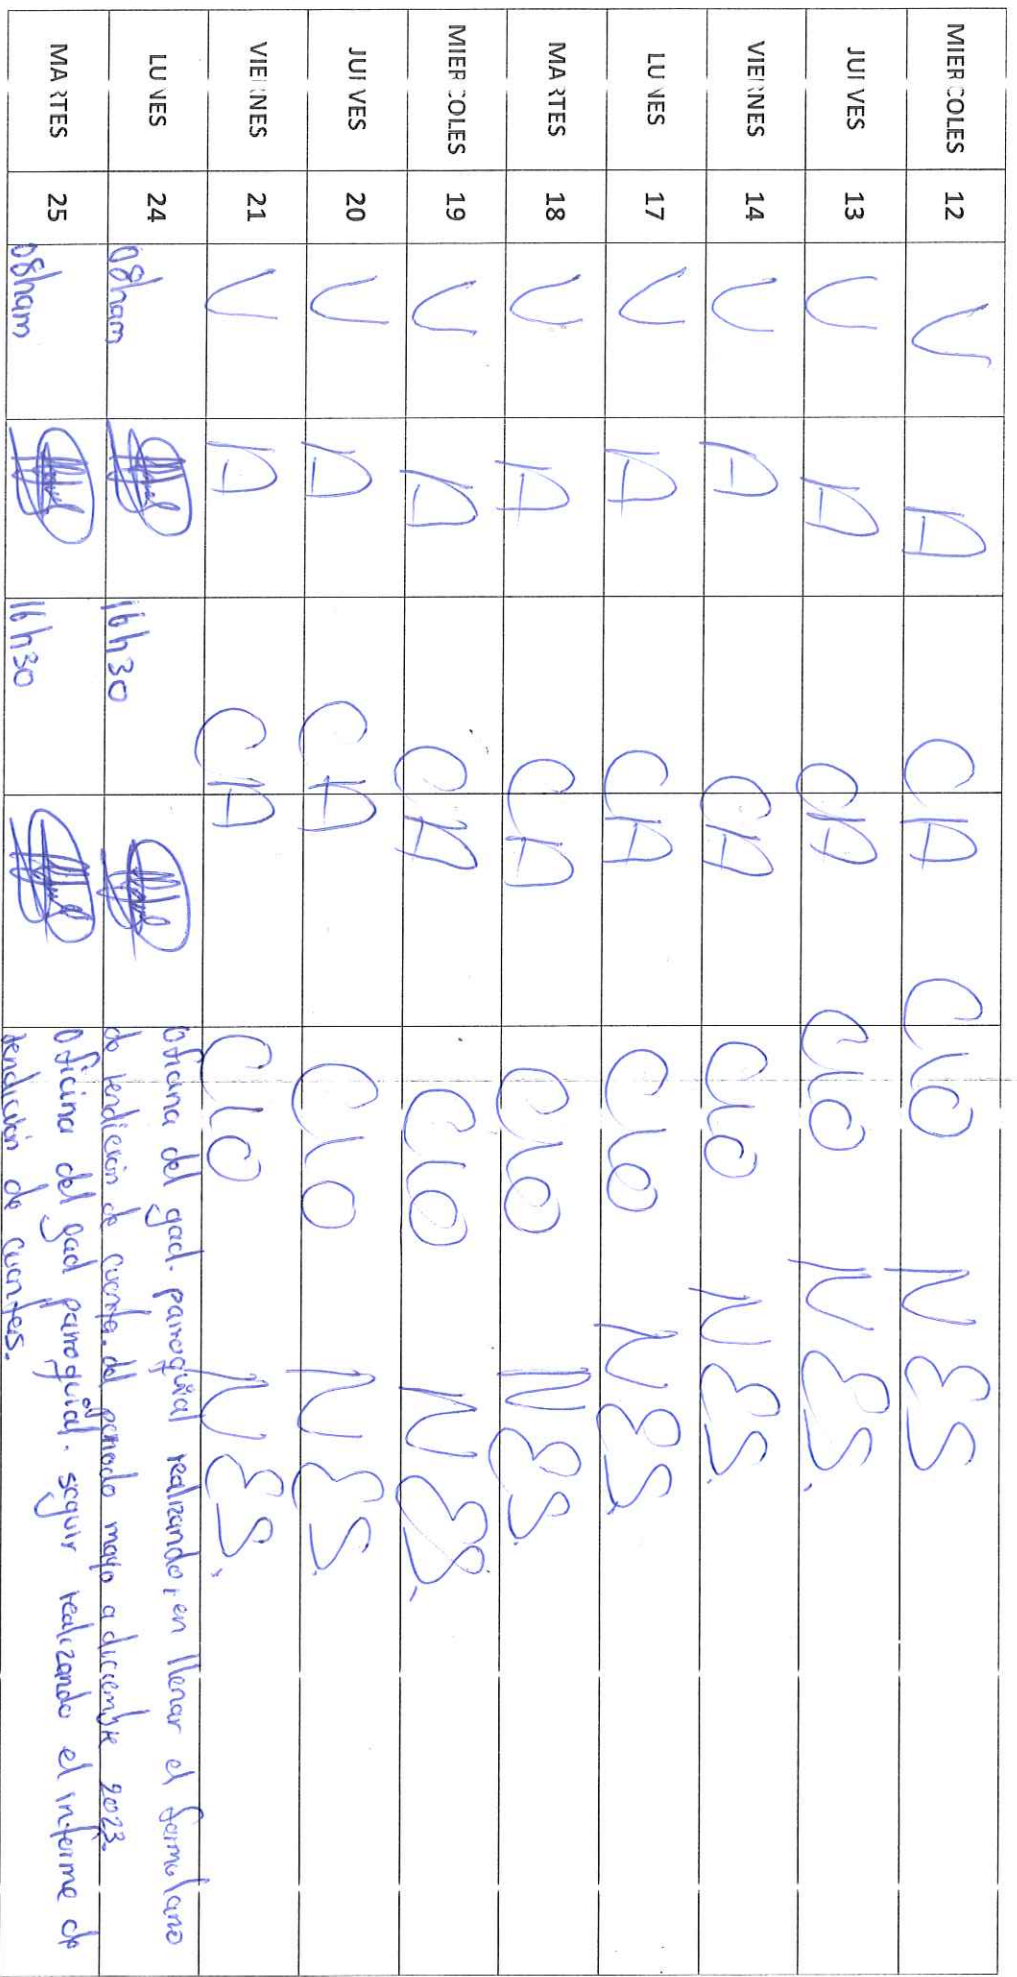 MIERCOLES 12 VA CA CIO NES
JUEVES 13 VA CA CIO NES.
VIERNES 14 VA CA CIO NES.
LUNES 17 VA CA CIO NES.
MARTES 18 VA CA CIO NES.
MIERCOLES 19 VA CA CIO NES.
JUEVES 20 VA CA CIO NES.
VIERNES 21 VA CA CIO NES.
LUNES 24 08ham 16h30 Oficina del gad. parroquial realizando, en llenar el formulario
de rendición de cuenta. del periodo mayo a diciembre 2023.
MARTES 25 08ham 16h30 Oficina del gad parroquial. seguir realizando el informe de
rendición de cuentas.